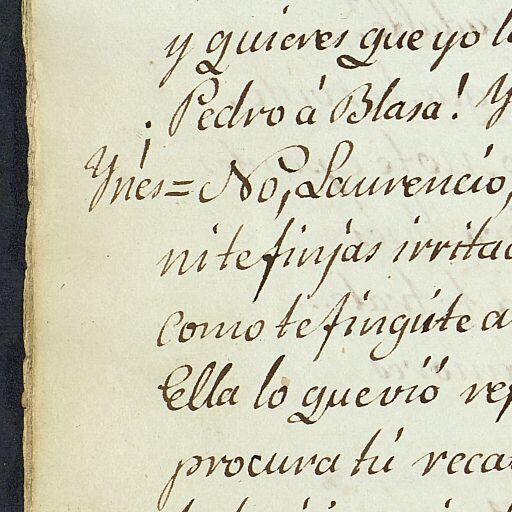 y quieres que yo l
¡Pedro á Blasa! Y
Ynés = No, Laurencio,
ni te finjas irrita
como te fingúte a
Ella lo que vió re
procura tú reca